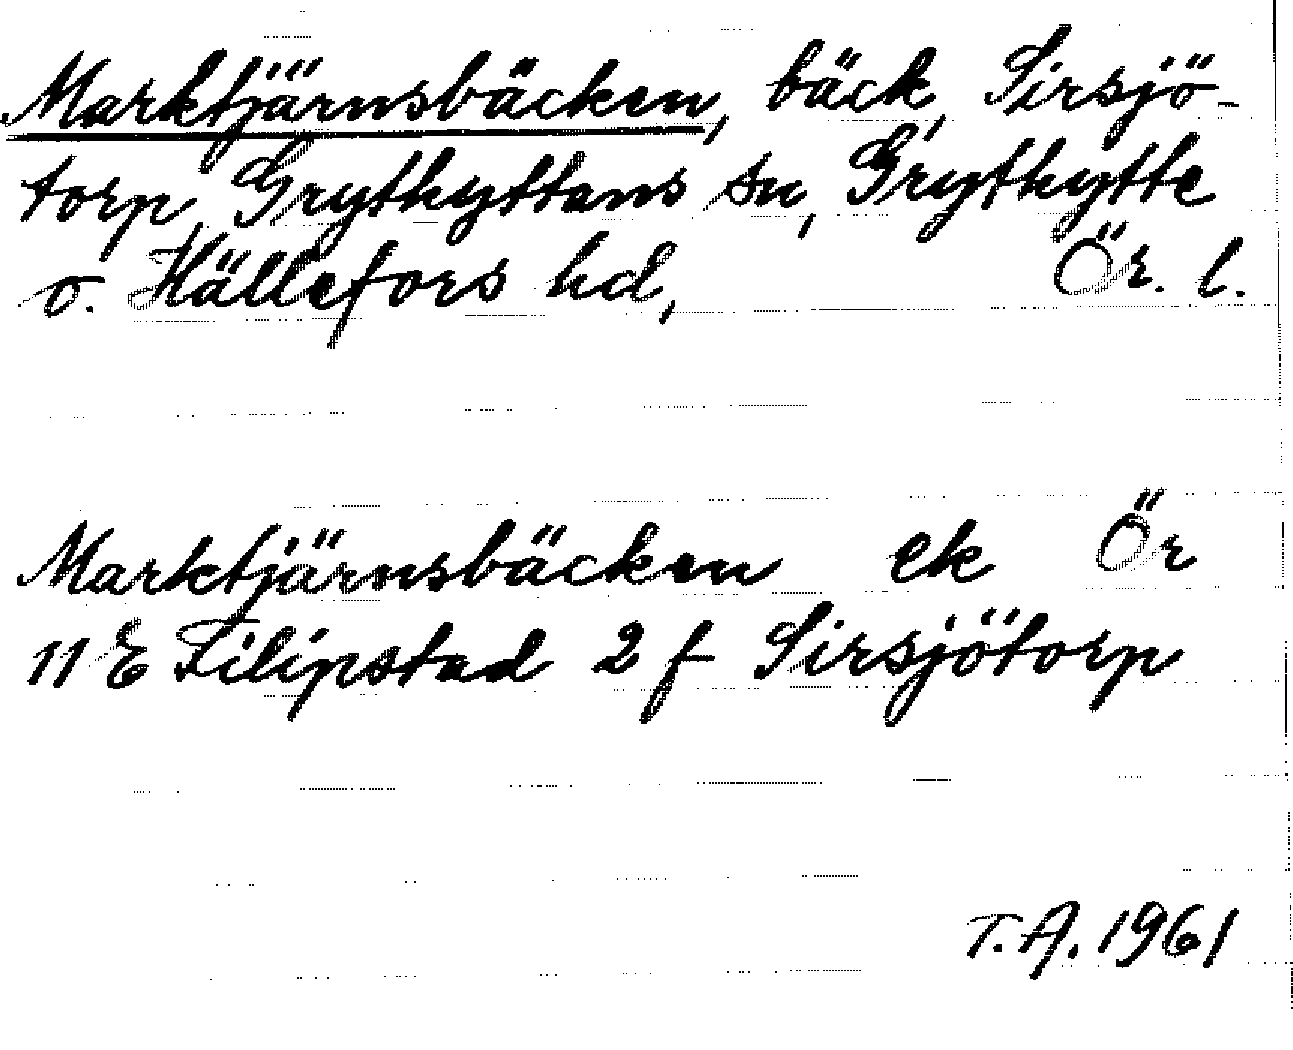 Marktjärnsbäcken, bäck, Sirsjö-
torp, Grythyttans sn, Grythytte
o. Hällefors hd, Ör. l.
Marktjärnsbäcken ek Ör
11 E Filipstad 2 f Sirsjötorp
T.A. 1961